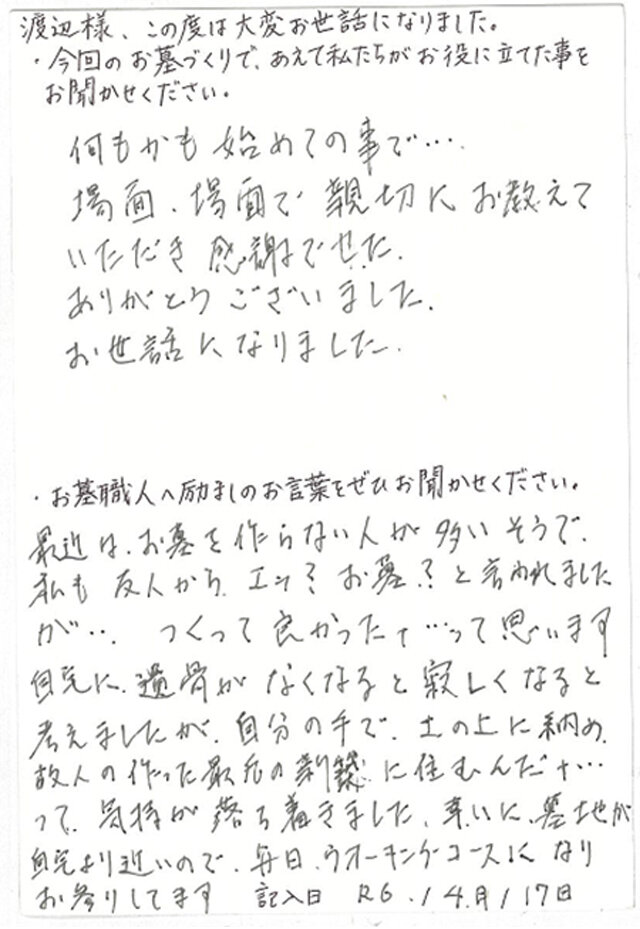 渡辺様、この度は大変お世話になりました。
・今回のお墓づくりで、あえて私たちがお役に立てた事を
お聞かせください。
何もかも始めての事で…
場面、場面で親切にお教えて
いただき感謝でせた.
ありがとうございました.
お世話になりました.
・お墓職人へ励ましのお言葉をぜひお聞かせください。
最近は、お墓を作らない人が多いそうで、
私も友人から、エッ？お墓？と言われました
が…、つくって良かったナ…って思います
自宅に、遺骨がなくなると寂しくなると
考えましたが、自分の手で、土の上に納め、
故人の作った最后の新築に住むんだナ…
って、気持が落ち着きました、幸いに、墓地が
自宅より近いので、毎日、ウオーキングコースになり
お参りしてます 記入日 R6./4.月/17日